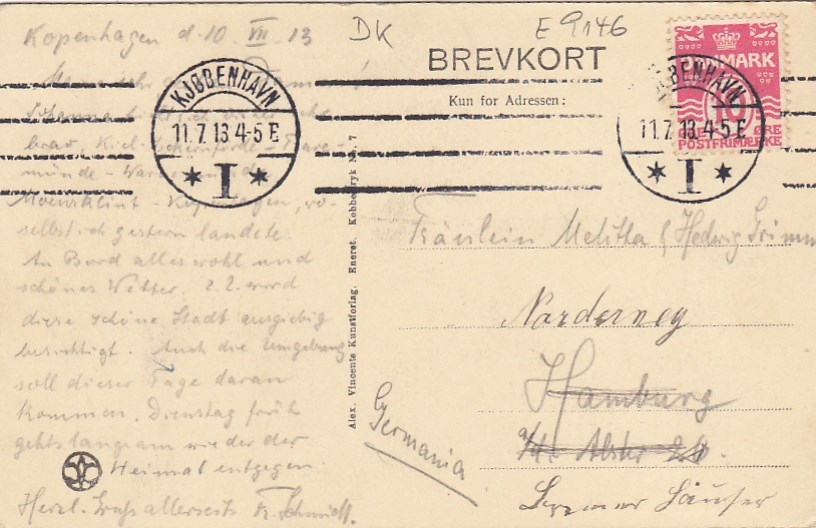 Kopenhagen d. 10. VII. 13
DK
E 9146
BREVKORT
Kun for Adressen:
DANMARK
10
ØRE
POSTFRIMÆRKE
KJØBENHAVN
11.7.13 4-5 E
I
KJØBENHAVN
11.7.13 4-5 E
I
Johanna
brav, Kiel-Eckernförde-Trave-
münde-Warnemünde
Moensklint-Kopenhagen, wo-
selbst ich gestern landete.
An Bord alles wohl und
schönes Wetter. z.Z. wird
diese schöne Stadt ausgiebig
besichtigt. Auch die Umgebung
soll dieser Tage daran
kommen. Dienstag früh
gehts langsam wieder der
Heimat entgegen.
Herzl. Gruß allerseits K. Schmidt.
Alex. Vincents Kunstforlag. Eneret. Kobbertryk No. 7
Fräulein Melitta & Hedwig Grimm
Norderney
Hamburg
Alster
Germania
Häuser